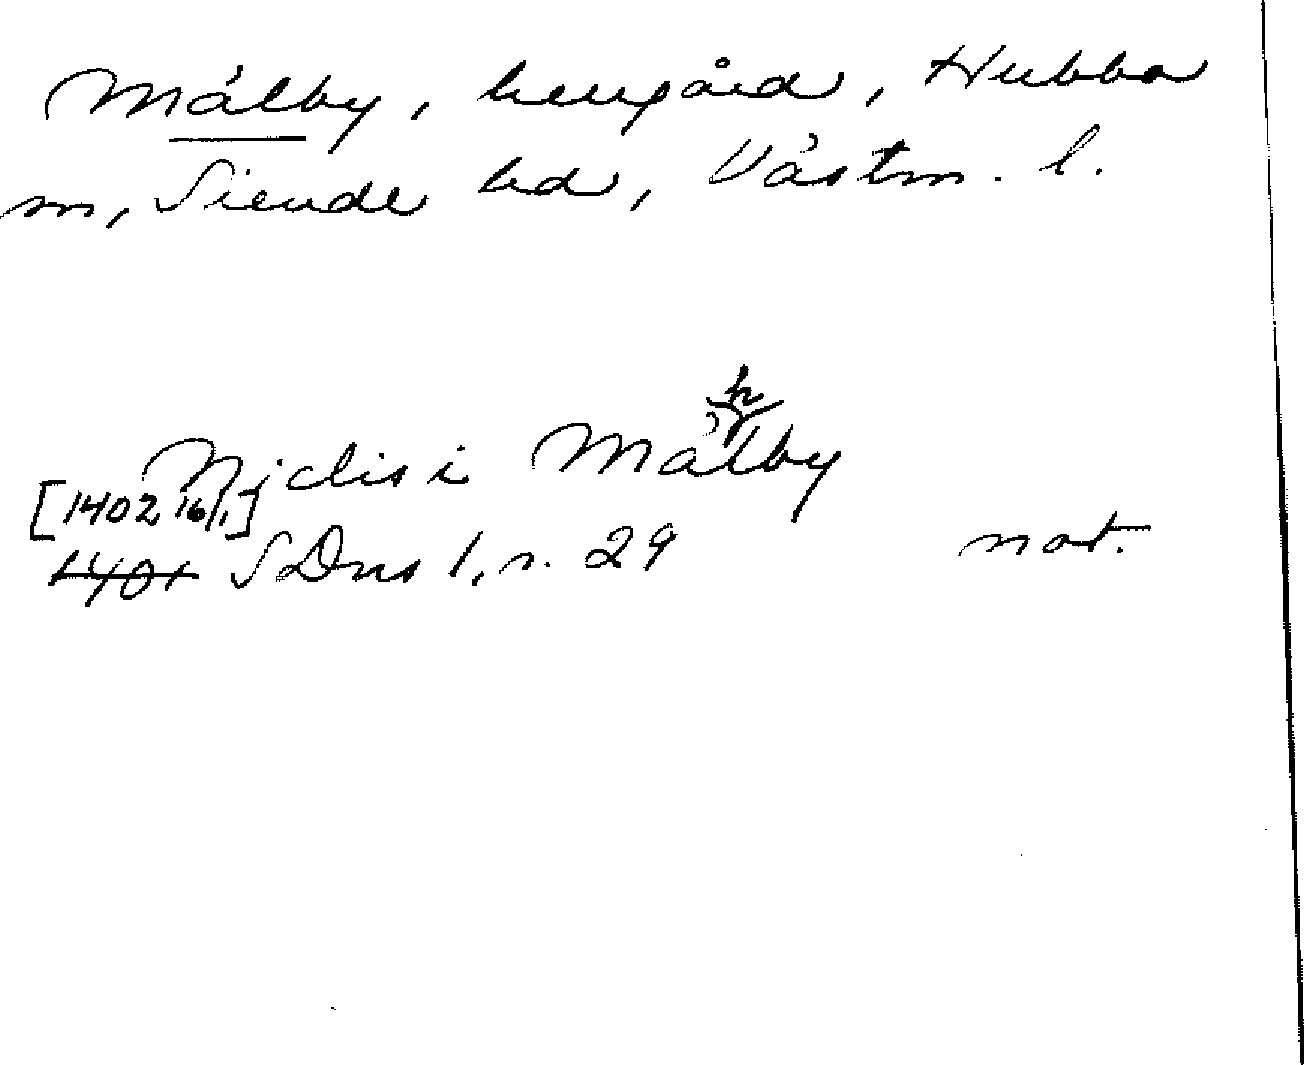 Målby, herrgård, Hubbo
sn, Siende hd, Västm. l.
h
Niclis i Malby
[1402 16/1]
1401 SDns 1, s. 29 not.